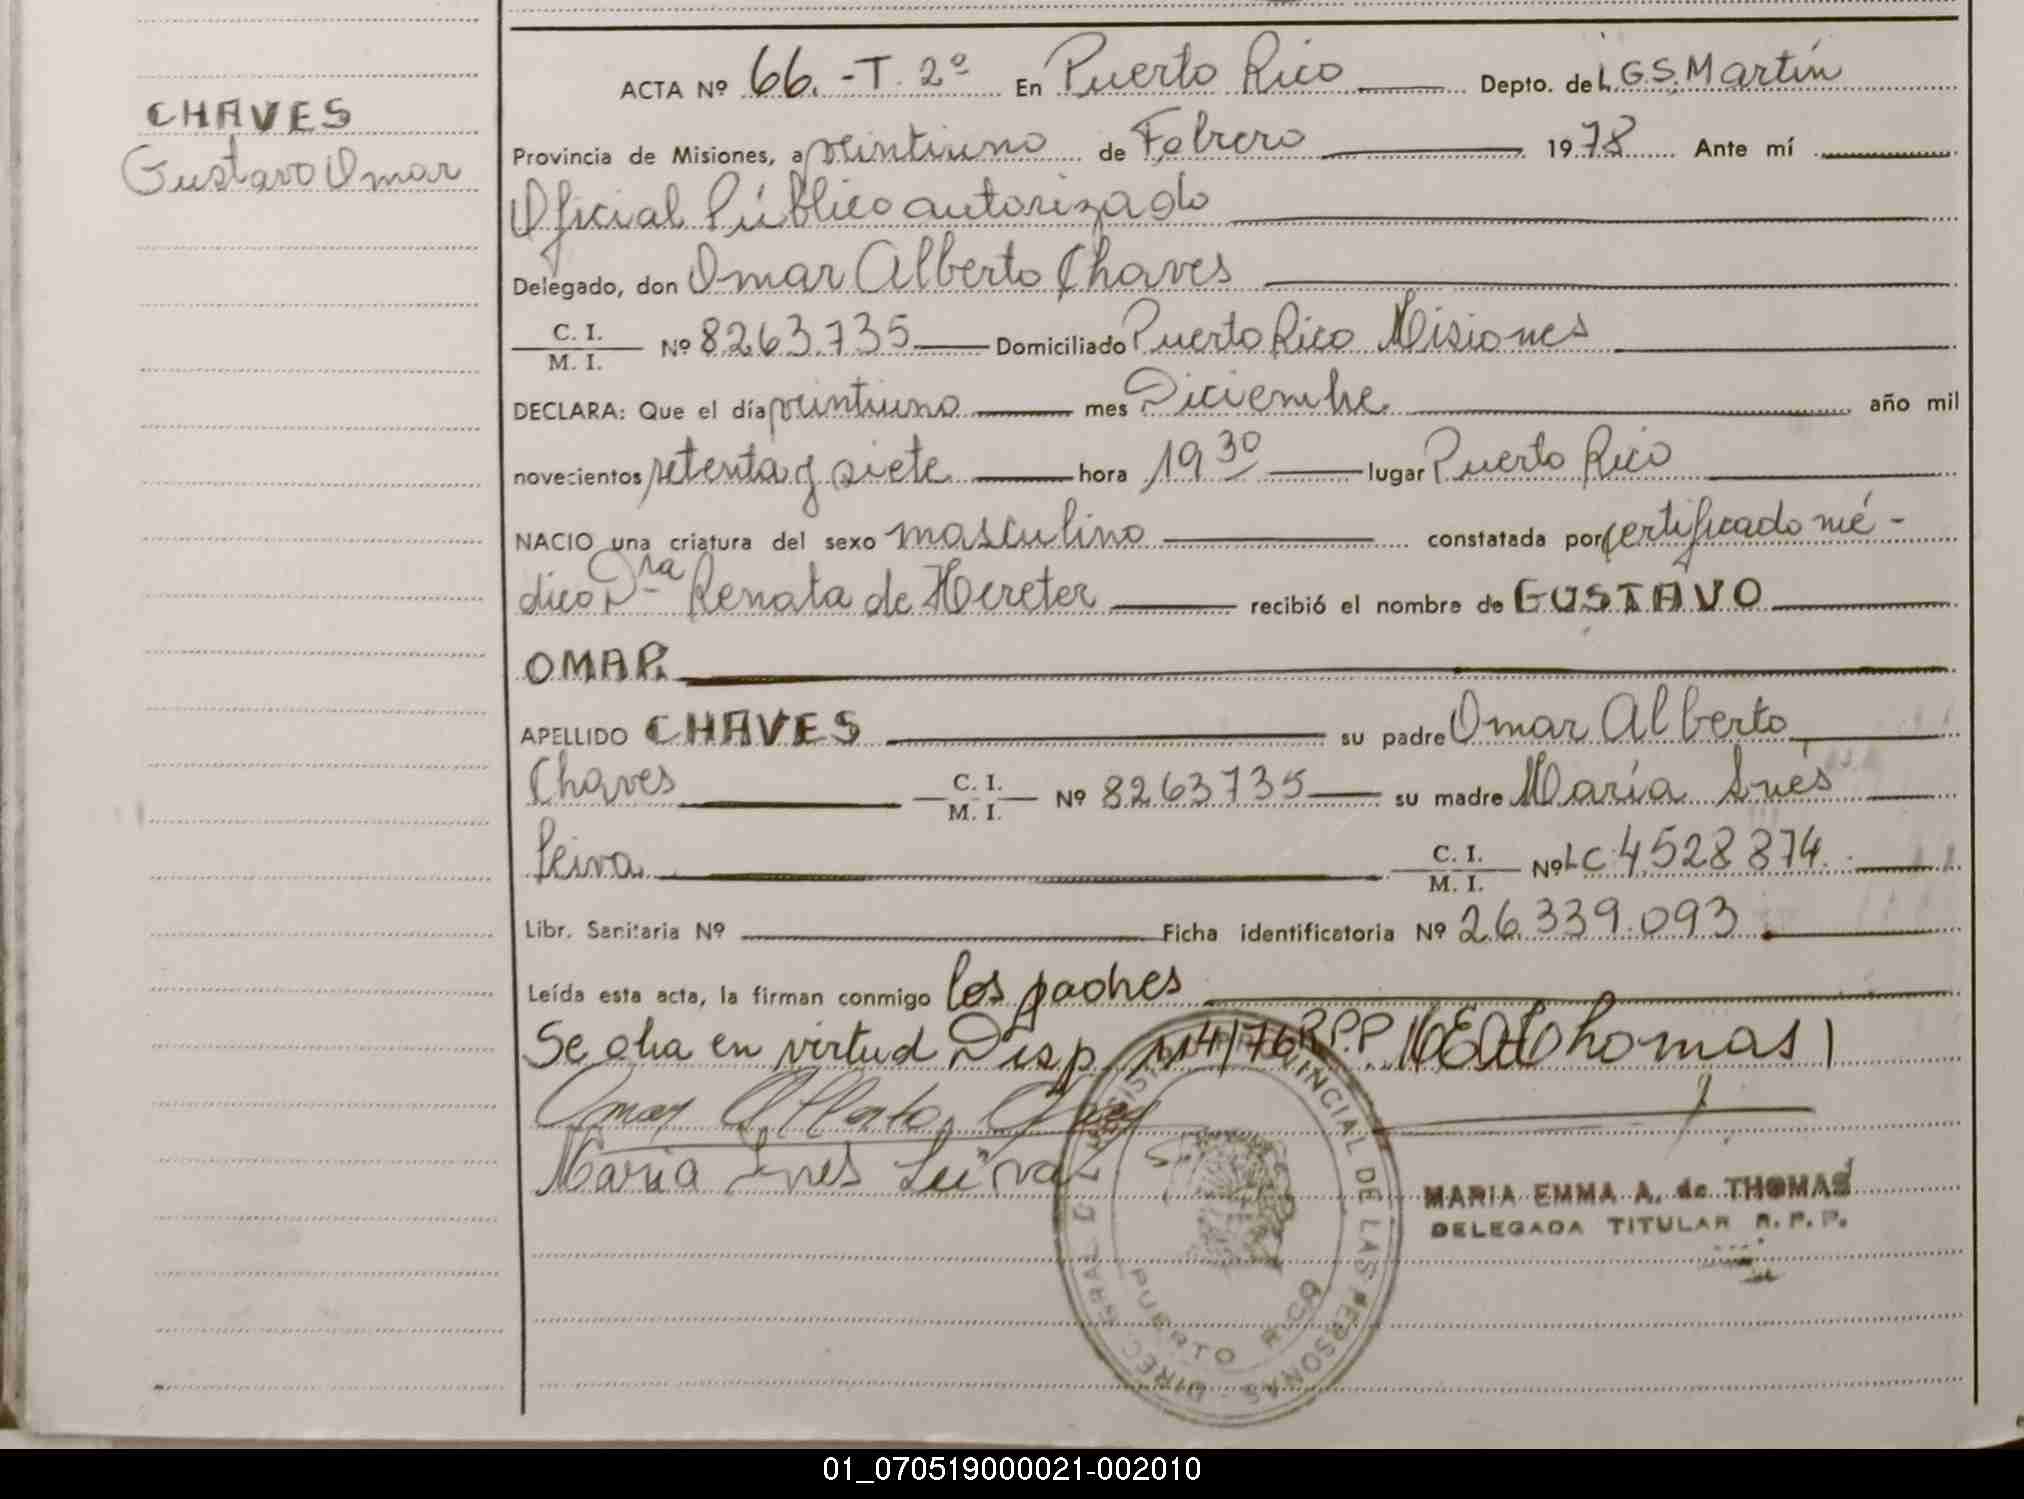 CHAVES
Gustavo Omar
ACTA Nº 66.-T. 2º En Puerto Rico Depto. de L.G.S.Martín
Provincia de Misiones, a veintiuno de Febrero 1978 Ante mí
Oficial Público autorizado
Delegado, don Omar Alberto Chaves
C. I.
M. I.
Nº 8263735 Domiciliado Puerto Rico Misiones
DECLARA: Que el día veintiuno mes Diciembre año mil
novecientos setenta y siete hora 19 30 lugar Puerto Rico
NACIO una criatura del sexo masculino constatada por certificado mé-
dico Dra Renata de Hereter recibió el nombre de GUSTAVO
OMAR
APELLIDO CHAVES su padre Omar Alberto
Chaves C. I. M. I. Nº 8263735 su madre María Inés
Leiva C. I. M. I. Nº LC 4528874
Libr. Sanitaria Nº Ficha identificatoria Nº 26.339.093
Leída esta acta, la firman conmigo los padres
Se oha en virtud Disp 114/76 R.P.P.
Omar Alberto Chaves
Maria Ines Leiva
DIREC. GRAL. PROVINCIAL DE LAS PERSONAS
PUERTO RICO
MARIA EMMA A. de THOMAS
DELEGADA TITULAR R. P. P.
01_070519000021-002010